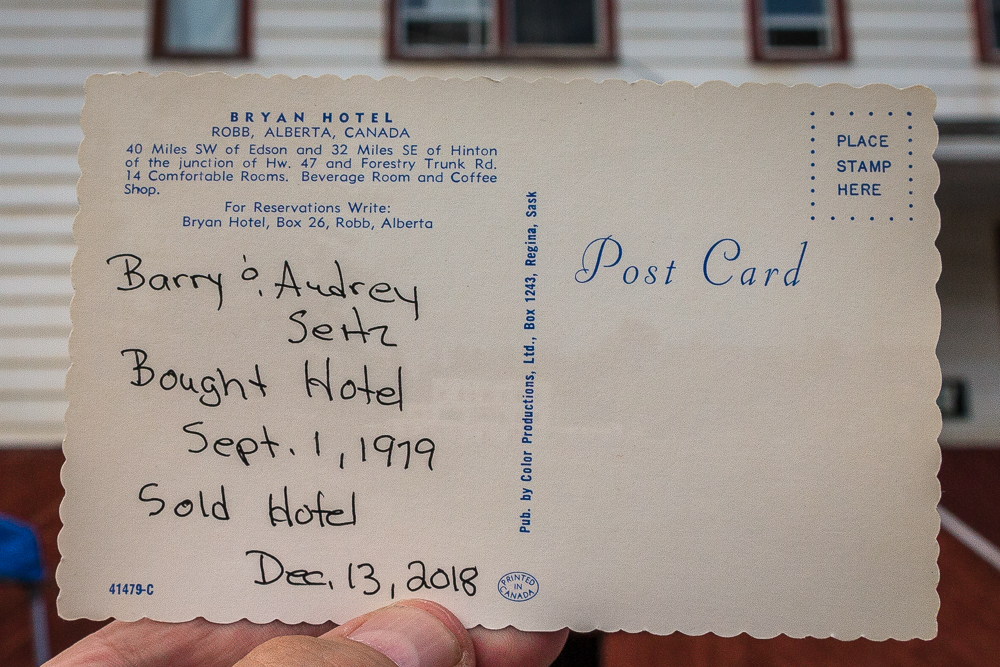 BRYAN HOTEL
ROBB, ALBERTA, CANADA
40 Miles SW of Edson and 32 Miles SE of Hinton
of the junction of Hw. 47 and Forestry Trunk Rd.
14 Comfortable Rooms. Beverage Room and Coffee
Shop.
For Reservations Write:
Bryan Hotel, Box 26, Robb, Alberta
Barry & Audrey
Seitz
Bought Hotel
Sept. 1, 1979
Sold Hotel
Dec. 13, 2018
41479-C
Pub. by Color Productions, Ltd., Box 1243, Regina, Sask
PRINTED
IN
CANADA
Post Card
PLACE
STAMP
HERE